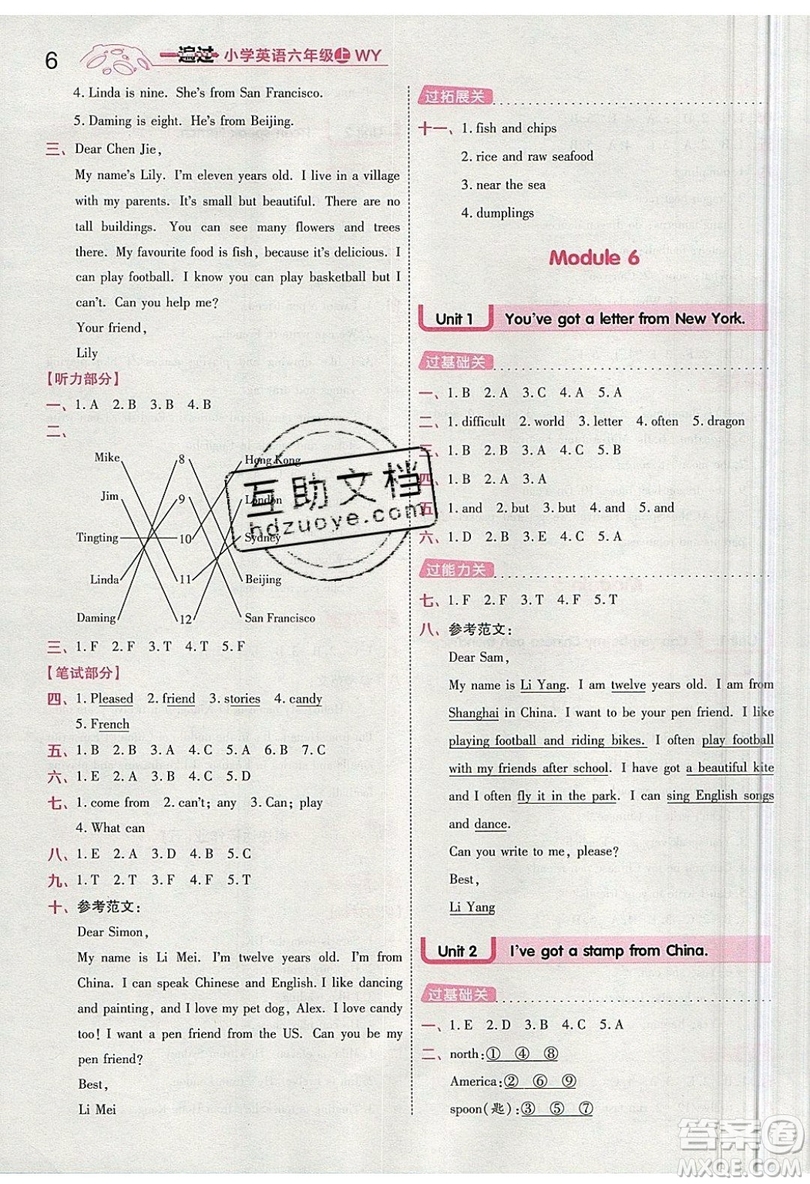 6
一遍过 小学英语六年级上 WY
4. Linda is nine. She's from San Francisco.
5. Daming is eight. He's from Beijing.
三、 Dear Chen Jie,
My name's Lily. I'm eleven years old. I live in a village
with my parents. It's small but beautiful. There are no
tall buildings. You can see many flowers and trees
there. My favourite food is fish, because it's delicious. I
can play football. I enjoy reading about basketball but I
can't. Can you help me?
Your friend,
Lily
【听力部分】
一、 1. A 2. B 3. B 4. B
二、
Mike 8 Hong Kong
Jim 9 London
Tingting 10 Sydney
Linda 11 Beijing
Daming 12 San Francisco
三、 1. F 2. F 3. T 4. T 5. F
【笔试部分】
四、 1. Pleased 2. friend 3. stories 4. candy
5. French
五、 1. B 2. B 3. A 4. C 5. A 6. B 7. C
六、 1. E 2. A 3. D 4. C 5. B
七、 1. come from 2. can't; any 3. Can; play
4. What can
八、 1. E 2. A 3. D 4. B 5. C
九、 1. T 2. T 3. F 4. F 5. T
十、 参考范文:
Dear Simon,
My name is Li Mei. I'm twelve years old. I'm from
China. I can speak Chinese and English. I like dancing
and painting, and I love my pet dog, Alex. I love candy
too! I want a pen friend from the US. Can you be my
pen friend?
Best,
Li Mei
过拓展关
十一、 1. fish and chips
2. rice and raw seafood
3. near the sea
4. dumplings
Module 6
Unit 1 You've got a letter from New York.
过基础关
一、 1. B 2. A 3. C 4. A 5. A
二、 1. difficult 2. world 3. letter 4. often 5. dragon
三、 1. B 2. B 3. A 4. A 5. B
四、 1. B 2. A 3. A
五、 1. and 2. but 3. but 4. and 5. and
六、 1. D 2. B 3. A 4. E 5. C
过能力关
七、 1. F 2. F 3. T 4. F 5. T
八、 参考范文:
Dear Sam,
My name is Li Yang. I am twelve years old. I am from
Shanghai in China. I want to be your pen friend. I like
playing football and riding bikes. I often play football
with my friends after school. I have got a beautiful kite
and I often fly it in the park. I can sing English songs
and dance.
Can you write to me, please?
Best,
Li Yang
Unit 2 I've got a stamp from China.
过基础关
一、 1. E 2. D 3. B 4. C 5. A
二、 north: ① ④ ⑧
America: ② ⑥ ⑨
spoon(匙): ③ ⑤ ⑦
互助文档
hdzuoye.com
答案圈
MXQE.COM